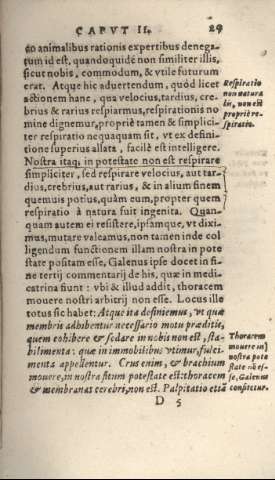 CAPVT II. 29
do animalibus rationis expertibus denega-
tum id est, quandoquidē non similiter illis,
sicut nobis, commodum, & vtile futurum
erat. Atque hic aduertendum, quòd licet
actionem hanc, qua velocius, tardius, cre-
brius & rarius respiramus, respirationis no
mine dignemur, propriè tamen & simplici-
ter respiratio nequaquam sit, vt ex defini-
tione superius allata, facilè est intelligere.
Nostra itaq; in potestate non est respirare
simpliciter, sed respirare velocius, aut tar-
dius, crebrius, aut rarius, & in alium finem
quemuis potius, quàm eum, propter quem
respiratio à natura fuit ingenita. Quan-
quam autem ei resistere, ipsamque, vt dixi-
mus, mutare valeamus, non tamen inde col
ligendum functionem illam nostra in pote
state positam esse, Galenus ipse docet in fi-
ne tertij commentarij de his, quæ in medi-
catrina fiunt: vbi & illud addit, thoracem
mouere nostri arbitrij non esse. Locus ille
totus sic habet: Atque ita definiemus, vt quæ
membris adhibentur necessario motu præditis,
quem cohibere & sedare in nobis non est, sta-
bilimenta: quæ in immobilibus vtimur, fulci-
menta appellentur. Crus enim, & brachium
mouere, in nostra situm potestate est: thoracem
& membranas cerebri, non est. Palpitatio etiā
D 5
Respiratio
non natura
lis, non est
propriè re-
spiratio.
Thoracem
mouere in
nostra pote
state nō es-
se, Galenus
conficetur.